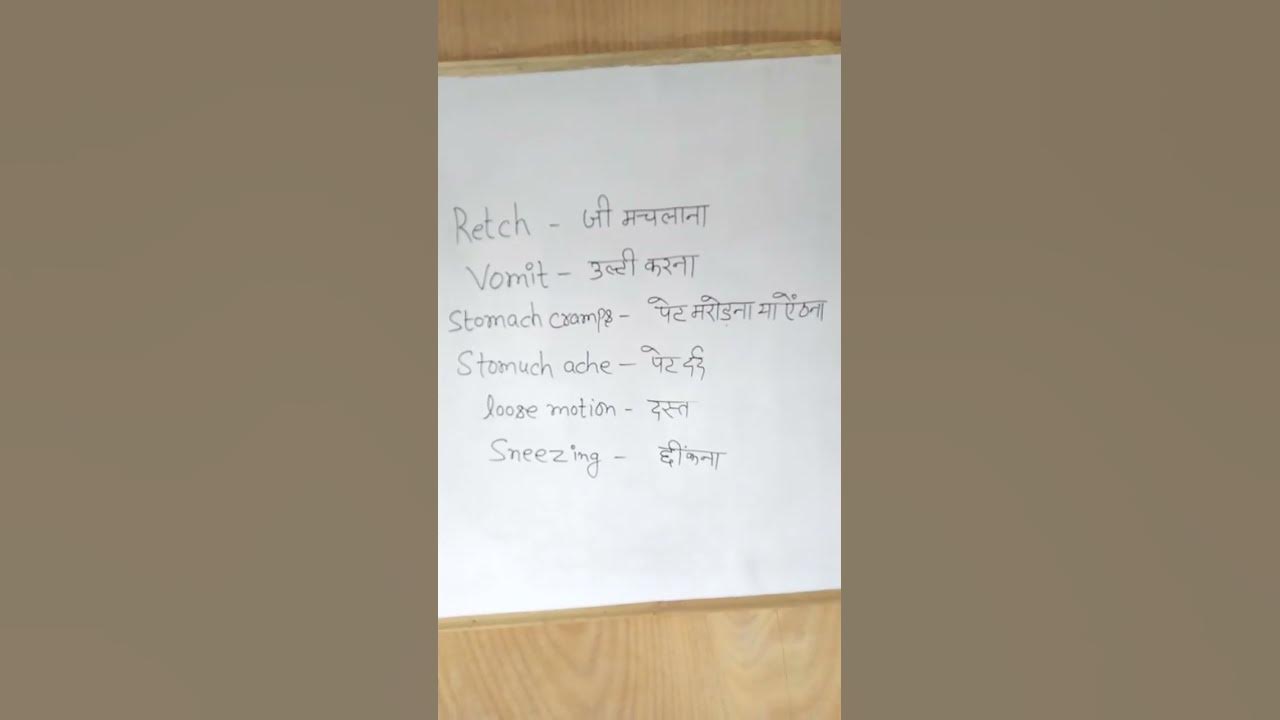 Retch - जी मचलाना
Vomit - उल्टी करना
Stomach cramps - पेट मरोड़ना या ऐंठना
Stomuch ache - पेट दर्द
loose motion - दस्त
Sneezing - छींकना